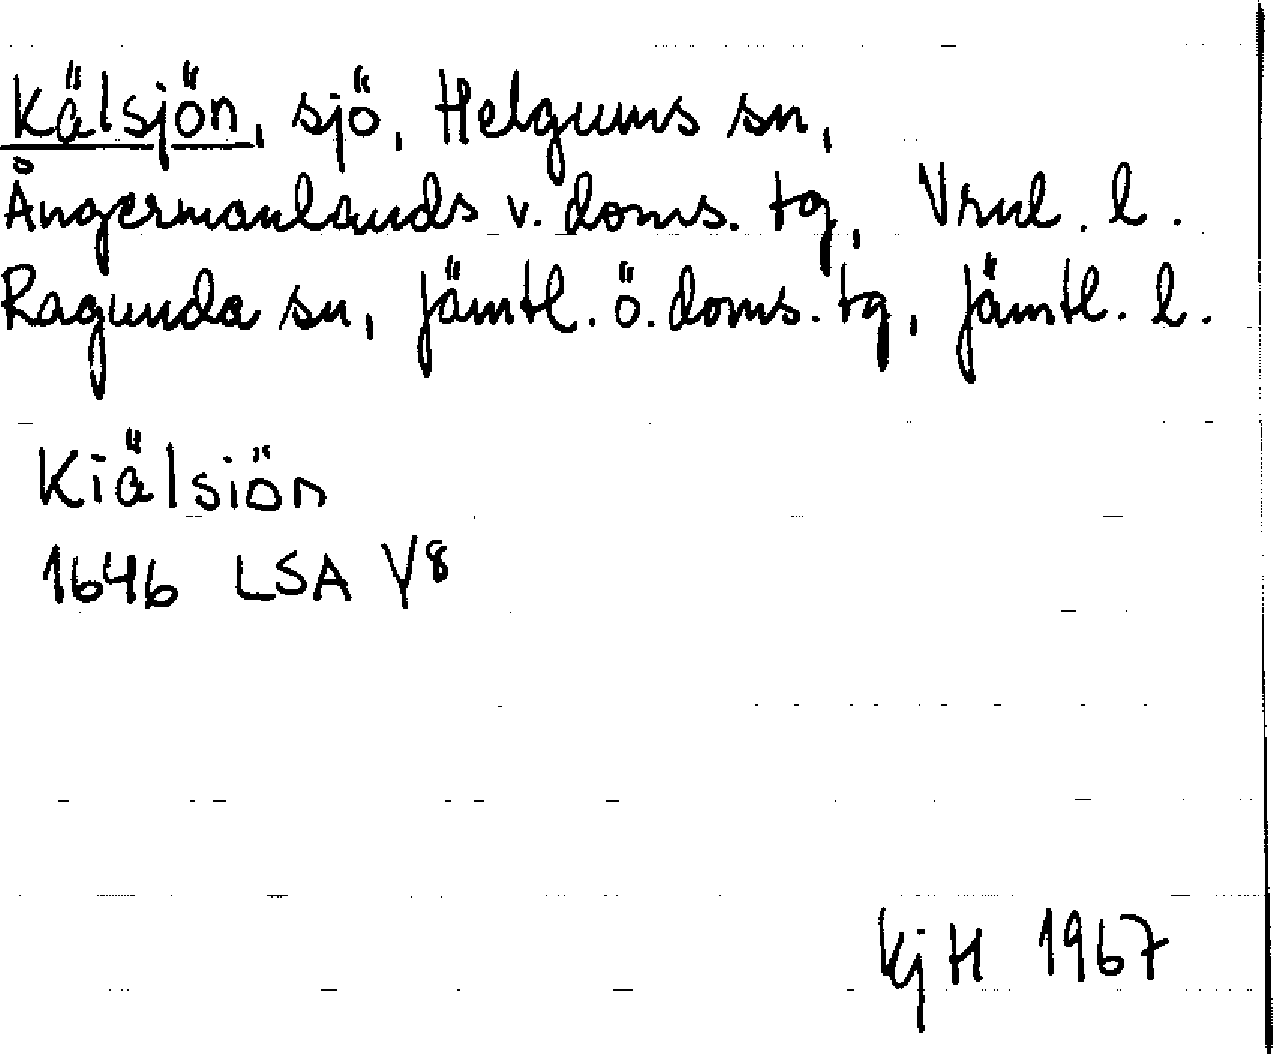 Kälsjön, sjö, Helgums sn,
Ångermanlands v. doms. tg, Vrnl. l.
Ragunda sn, Jämtl. ö. doms. tg, Jämtl. l.
Kiälsiön
1646 LSA Y8
KjH 1967